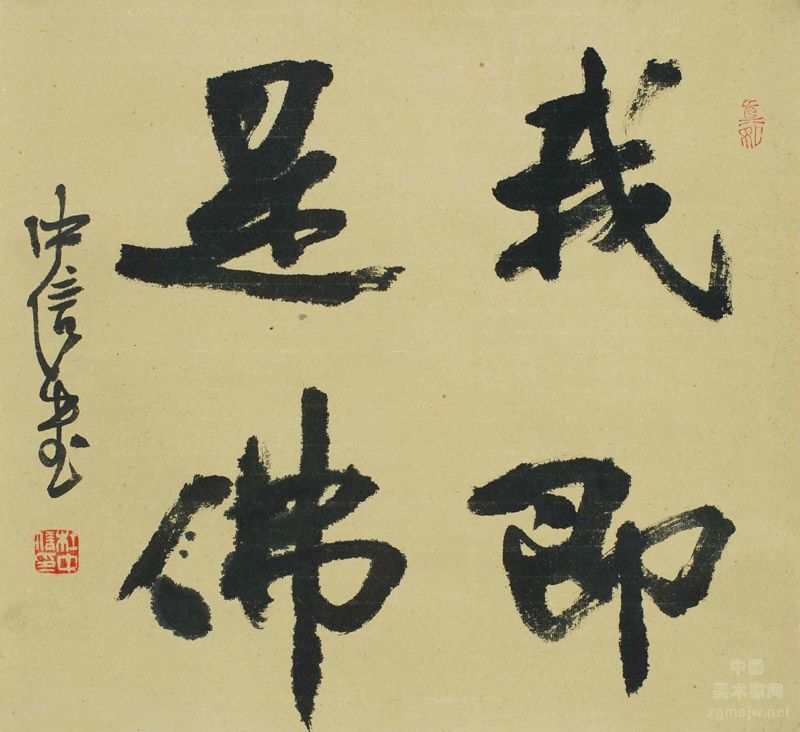 我即
是佛
中信書
杜中
信印
中国
美术家网
zgmsjw.net